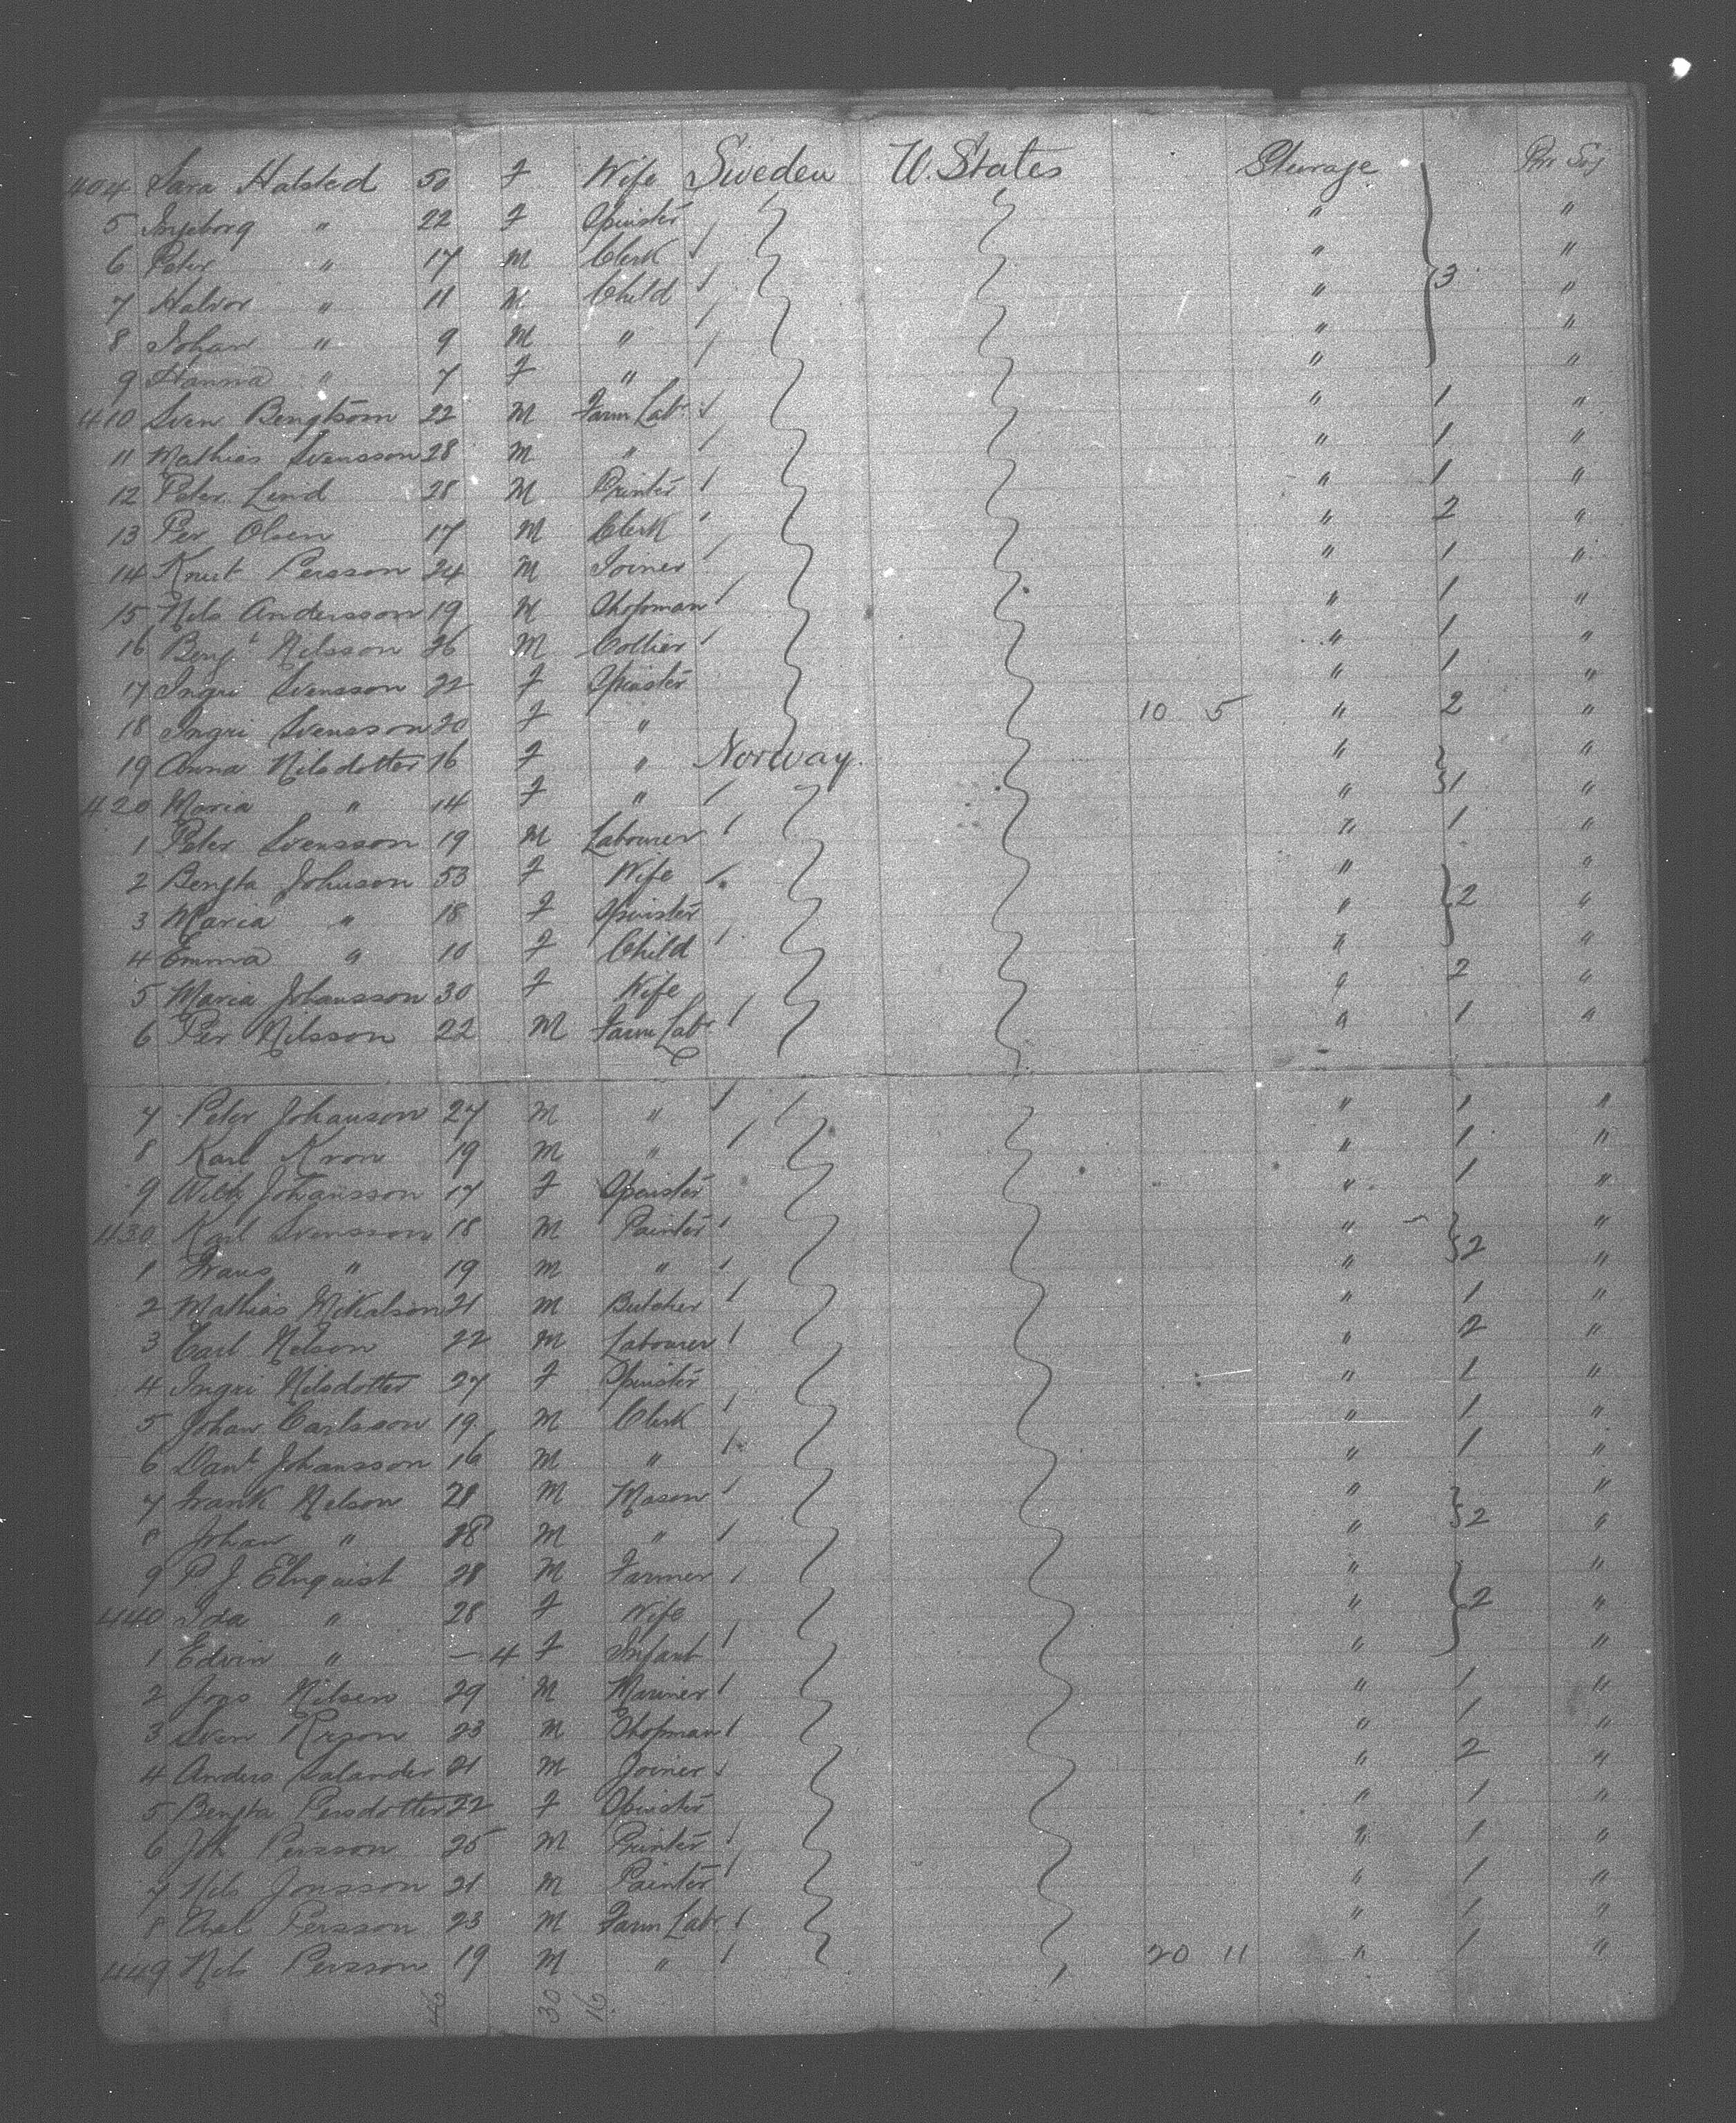 404 Sara Halsted 50 F Wife Sweden U. States Sterage Pro Soj
5 Ingeborg " 22 F Spinster " "
6 Peter " 17 M Clerk " "
7 Halvor " 11 M Child " 3 "
8 Johan " 9 M " " "
9 Hanna " 7 F " " "
410 Sven Bengtsson 22 M Farm Labr " 1 "
11 Mathias Svensson 28 M " " 1 "
12 Peter Lind 28 M Printer " 1 "
13 Per Olsen 17 M Clerk " 2 "
14 Knut Persson 24 M Joiner " 1 "
15 Nils Andersson 19 M Shopman " 1 "
16 Bengt Nilsson 26 M Collier " 1 "
17 Ingri Svensson 22 F Spinster " 1 "
18 Ingri Svensson 20 F " 10 5 " 2 "
19 Anna Nilsdotter 16 F " Norway " "
420 Maria " 14 F " " 1 "
1 Peter Svensson 19 M Labourer " 1 "
2 Bengta Johnson 53 F Wife " "
3 Maria " 18 F Spinster " 2 "
4 Emma " 10 F Child " "
5 Maria Johansson 30 F Wife " 2 "
6 Per Nilsson 22 M Farm Labr " 1 "
7 Peter Johanson 27 M " " 1 "
8 Karl Kron 19 M " " 1 "
9 Johansson 17 F Spinster " 1 "
430 Karl Svensson 18 M Painter " "
1 Frans " 19 M " " 2 "
2 Mathias Mikalson 21 M Butcher " 1 "
3 Carl Nelson 22 M Labourer " 2 "
4 Ingri Nilsdotter 27 F Spinster " 1 "
5 Johan Carlsson 19 M Clerk " 1 "
6 Danl Johansson 16 M " " 1 "
7 Frank Nelson 21 M Mason " "
8 Johan " 18 M " " 2 "
9 P J Elnquist 28 M Farmer " "
440 Ida " 28 F Wife " 2 "
1 Edvin " — 4 F Infant " "
2 Jons Nilsen 29 M Mariner " 1 "
3 Sven 23 M Shopman " 1 "
4 Anders Salander 21 M Joiner " 2 "
5 Bengta Persdotter 22 F Spinster " 1 "
6 Joh Persson 25 M Printer " 1 "
7 Nils Jonsson 21 M Painter " 1 "
8 Axel Persson 23 M Farm Labr " 1 "
449 Nils Persson 19 M " 20 11 " 1 "
46 30 16